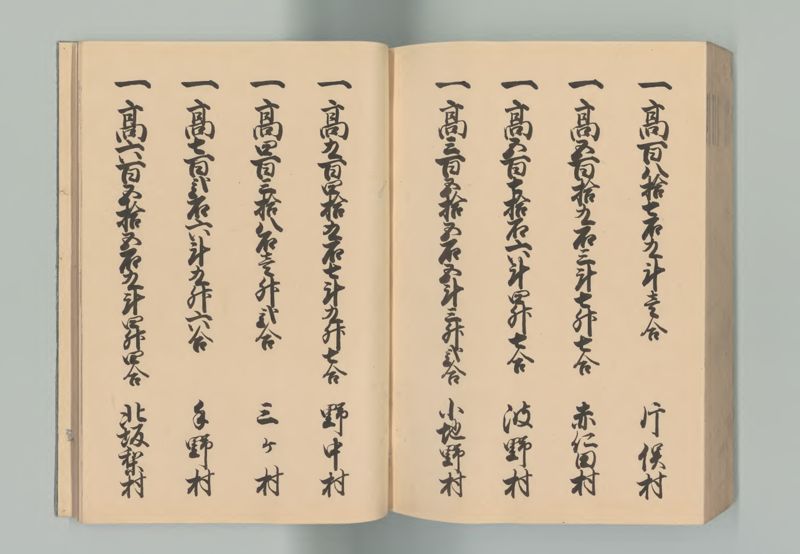 一高百八拾七石九斗壱合　片俣村
一高五百拾九石三斗七升七合　赤仁田村
一高五百七拾石六斗四升七合　波野村
一高三百五拾五石五斗三升弐合　小地野村
一高九百四拾九石七斗九升七合　野中村
一高四百三拾八石壱升弐合　三ケ村
一高七百弐石六斗九升六合　手野村
一高六百五拾五石九斗四升四合　北坂梨村